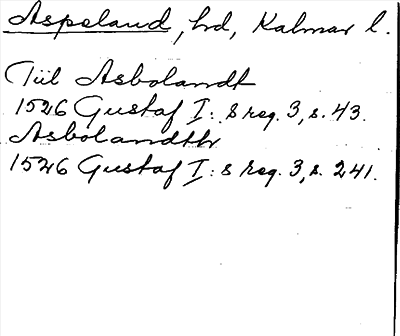 Aspeland, hd, Kalmar l.
Tiil Asbolandt
1526 Gustaf I: s reg. 3, s. 43.
Asbolandth
1526 Gustaf I: s reg. 3, s. 241.